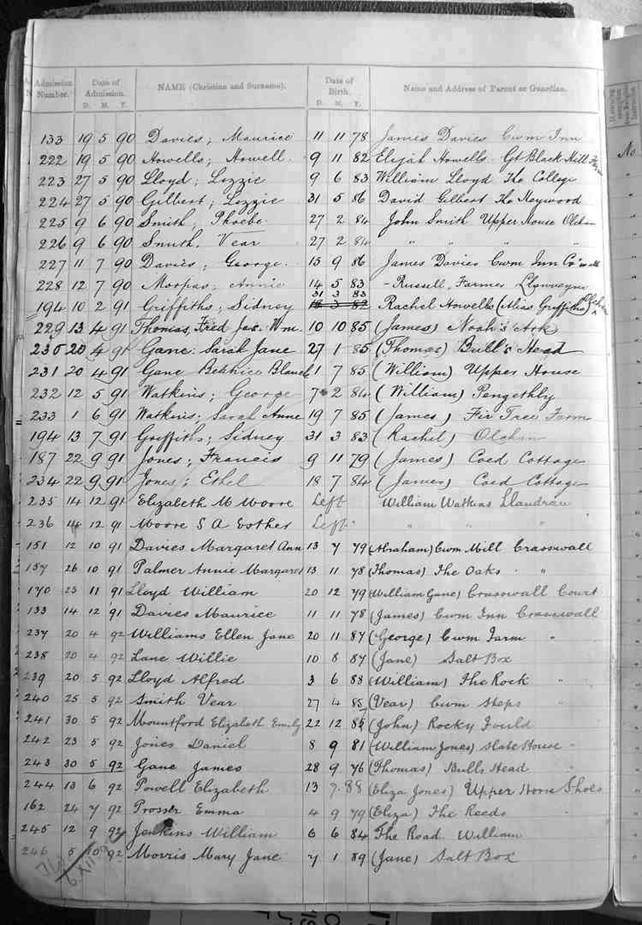 Admission Number. Date of Admission. D. M. Y. NAME (Christian and Surname). Date of Birth. D. M. Y. Name and Address of Parent or Guardian.
133 19 5 90 Davies; Maurice 11 11 78 James Davies Cwm Inn
222 19 5 90 Howells; Howell 9 11 82 Elijah Howells Gt Black Hill
223 27 5 90 Lloyd; Lozzie 9 6 83 William Lloyd The College
224 27 5 90 Gilbert; Lozzie 31 5 86 David Gilbert The Heywood
225 9 6 90 Smith; Phoebe 27 2 84 John Smith Upper House Olchon
226 9 6 90 Smith, Vear 27 2 84 " " " "
227 11 7 90 Davies; George 15 9 86 James Davies Cwm Inn
228 12 7 90 Annie 14 5 83 - Russell, Farmer Llanveyno
194 10 2 91 Griffiths; Sidney 31 3 83 Rachel Howells (Miss Griffiths)
229 13 4 91 Thomas, Fred Jas. Wm. 10 10 85 (James) Noah's Ark
230 20 4 91 Gane; Sarah Jane 27 1 85 (Thomas) Bull's Head
231 20 4 91 Gane Blanch 1 7 85 (William) Upper House
232 12 5 91 Watkins; George 7 2 84 (William) Pengethly
233 1 6 91 Watkins; Sarah Anne 19 7 85 (James) Fir Tree Farm
194 13 7 91 Griffiths; Sidney 31 3 83 (Rachel) Olchon
187 22 9 91 Jones; Francis 9 11 79 (James) Coed Cottage
234 22 9 91 Jones; Ethel 18 7 84 (James) Coed Cottage
235 14 12 91 Elizabeth M Moore Left William Watkins Llandraw
236 14 12 91 Moore S A Esther Left " " "
151 12 10 91 Davies Margaret Ann 13 7 79 (Abraham) Cwm Mill Crasswall
137 26 10 91 Palmer Annie Margaret 13 11 78 (Thomas) The Oaks "
170 23 11 91 Lloyd William 20 12 79 (William Gane) Crasswall Court
133 14 12 91 Davies Maurice 11 11 78 (James) Cwm Inn Crasswall
237 20 4 92 Williams Ellen Jane 20 11 87 (George) Cwm Farm "
238 20 4 92 Lane Willie 10 8 87 (Jane) Salt Box
239 20 5 92 Lloyd Alfred 3 6 88 (William) The Rock "
240 25 5 92 Smith Vear 27 4 85 (Vear) Cwm Steps "
241 30 5 92 Mountford Elizabeth Emily 22 12 85 (John) Rocky Fould
242 23 5 92 Jones Daniel 8 9 81 (William Jones) Slate House "
243 30 5 92 Gane James 28 9 76 (Thomas) Bulls Head "
244 13 6 92 Powell Elizabeth 13 7 88 (Eliza Jones) Upper Horse Shoes
162 24 7 92 Prosser Emma 4 9 79 (Eliza) The Reeds "
245 12 9 92 Jenkins William 6 6 84 The Road William
246 5 10 92 Morris Mary Jane 7 1 89 (Jane) Salt Box
No.